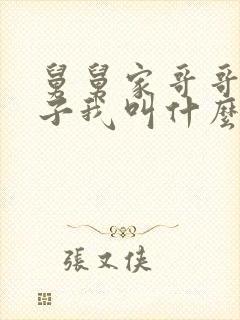 舅舅家哥哥
子我叫什麼
張又俠